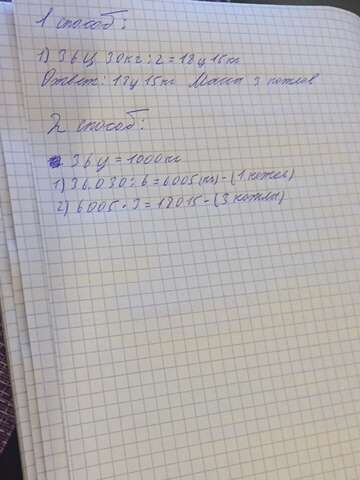 1 способ:
1) 36ц 30кг : 2 = 18ц 15кг
Ответ: 18ц 15кг Масса 3 котлов
2 способ:
36ц = 1000кг
1) 36.030 : 6 = 6005 (кг) - (1 котёл)
2) 6005 · 3 = 18015 - (3 котлы)